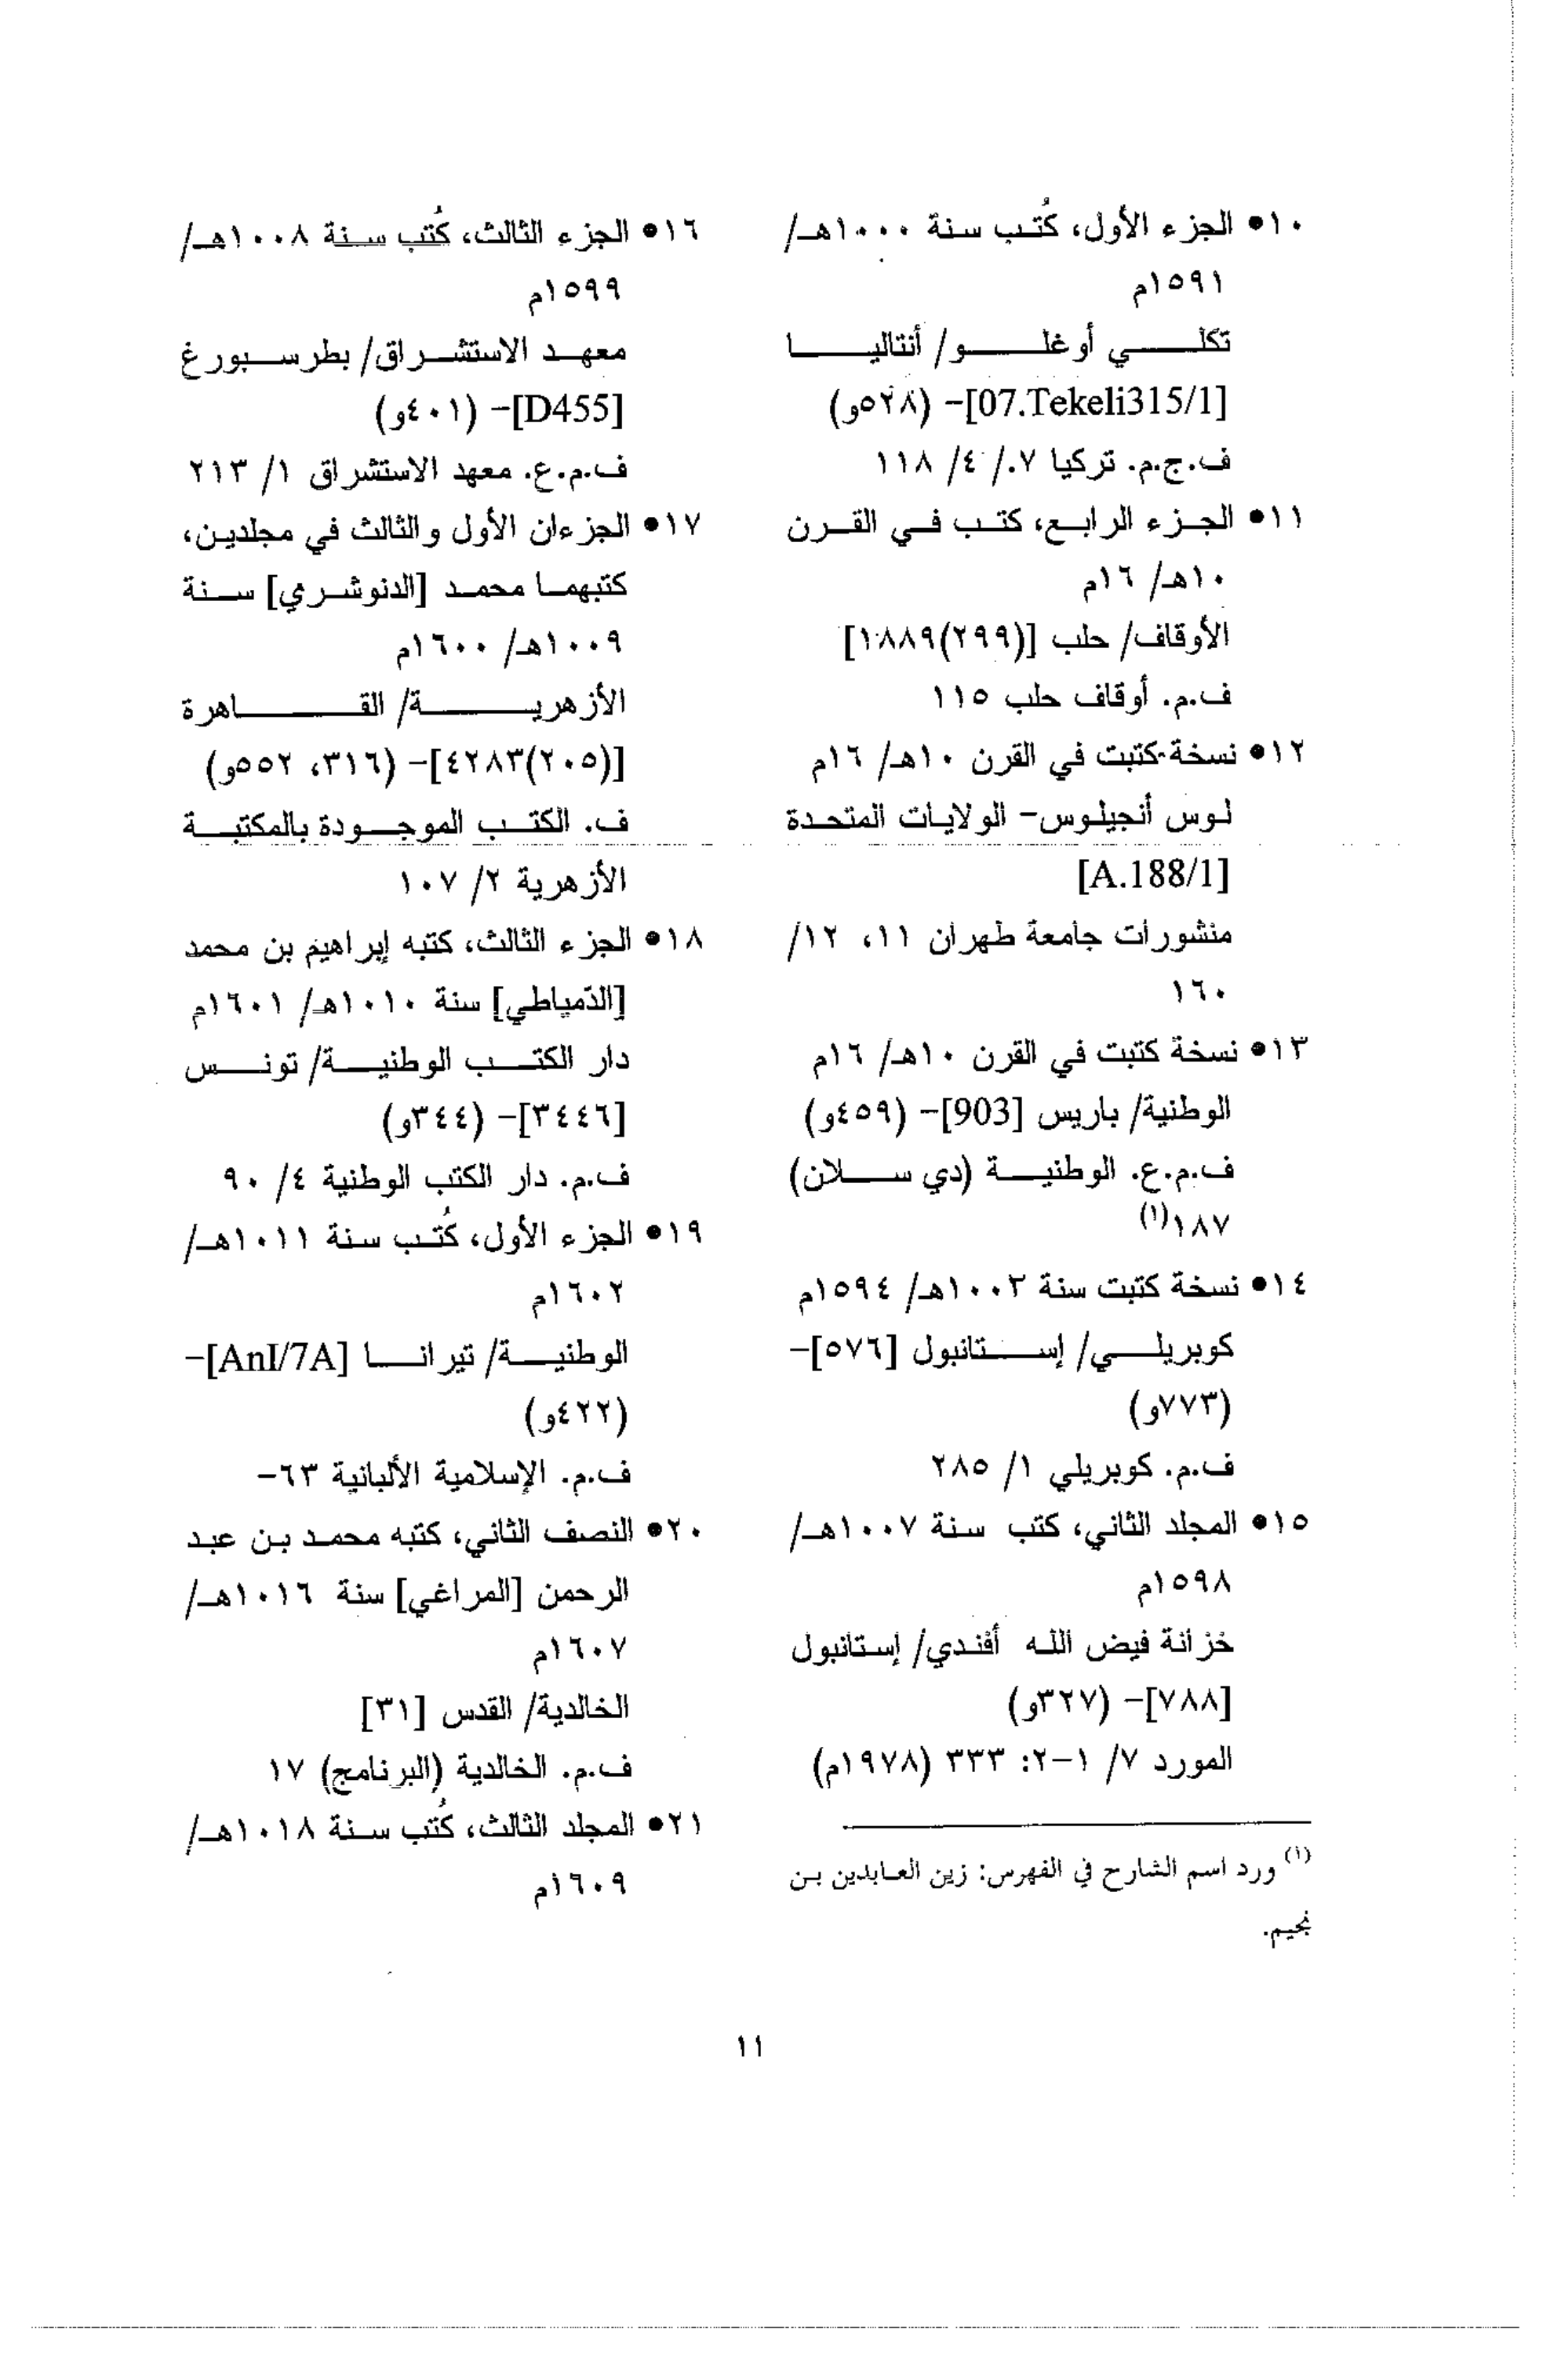 ١٠• الجزء الأول، كُتب سنة ١٠٠٠هـ/
١٥٩١م
تكلي أوغلو/ أنتاليا
[07.Tekeli315/1]- (٥٢٨و)
ف.ج.م. تركيا ٠٧/ ٤/ ١١٨
١١• الجزء الرابع، كتب في القرن
١٠هـ/ ١٦م
الأوقاف/ حلب [(٢٩٩)١٨٨٩]
ف.م. أوقاف حلب ١١٥
١٢• نسخة كتبت في القرن ١٠هـ/ ١٦م
لوس أنجيلوس- الولايات المتحدة
[A.188/1]
منشورات جامعة طهران ١١، ١٢/
١٦٠
١٣• نسخة كتبت في القرن ١٠هـ/ ١٦م
الوطنية/ باريس [903]- (٤٥٩و)
ف.م.ع. الوطنية (دي سلان)
١٨٧(١)
١٤• نسخة كتبت سنة ١٠٠٣هـ/ ١٥٩٤م
كوبريلي/ إستانبول [٥٧٦]-
(٧٧٣و)
ف.م. كوبريلي ١/ ٢٨٥
١٥• المجلد الثاني، كتب سنة ١٠٠٧هـ/
١٥٩٨م
خزانة فيض الله أفندي/ إستانبول
[٧٨٨]- (٣٢٧و)
المورد ٧/ ١-٢: ٣٣٣ (١٩٧٨م)
(١) ورد اسم الشارح في الفهرس: زين العابدين بن
نجيم.
١٦• الجزء الثالث، كُتب سنة ١٠٠٨هـ/
١٥٩٩م
معهد الاستشراق/ بطرسبورغ
[D455]- (٤٠١و)
ف.م.ع. معهد الاستشراق ١/ ٢١٣
١٧• الجزءان الأول والثالث في مجلدين،
كتبهما محمد [الدنوشري] سنة
١٠٠٩هـ/ ١٦٠٠م
الأزهرية/ القاهرة
[(٢٠٥)٤٢٨٣]- (٣١٦، ٥٥٢و)
ف. الكتب الموجودة بالمكتبة
الأزهرية ٢/ ١٠٧
١٨• الجزء الثالث، كتبه إبراهيم بن محمد
[الدّمياطي] سنة ١٠١٠هـ/ ١٦٠١م
دار الكتب الوطنية/ تونس
[٣٤٤٦]- (٣٤٤و)
ف.م. دار الكتب الوطنية ٤/ ٩٠
١٩• الجزء الأول، كُتب سنة ١٠١١هـ/
١٦٠٢م
الوطنية/ تيرانا [AnI/7A]-
(٤٢٢و)
ف.م. الإسلامية الألبانية ٦٣-
٢٠• النصف الثاني، كتبه محمد بن عبد
الرحمن [المراغي] سنة ١٠١٦هـ/
١٦٠٧م
الخالدية/ القدس [٣١]
ف.م. الخالدية (البرنامج) ١٧
٢١• المجلد الثالث، كُتب سنة ١٠١٨هـ/
١٦٠٩م
١١